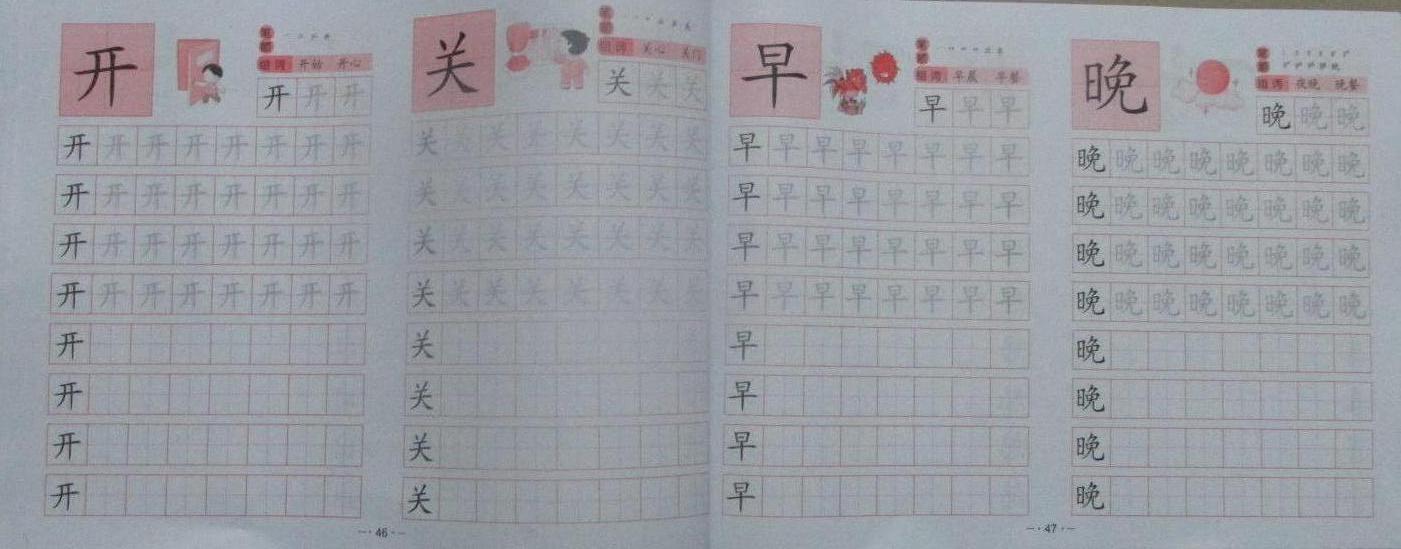 开
笔顺
组词 开始 开心
开 开 开
开 开 开 开 开 开 开 开
开 开 开 开 开 开 开 开
开 开 开 开 开 开 开 开
开 开 开 开 开 开 开 开
开
开
开
开
关
笔顺
组词 关心 关门
关 关 关
关 关 关 关 关 关 关 关
关 关 关 关 关 关 关 关
关 关 关 关 关 关 关 关
关 关 关 关 关 关 关 关
关
关
关
关
46
早
笔顺
组词 早晨 早餐
早 早 早
早 早 早 早 早 早 早 早
早 早 早 早 早 早 早 早
早 早 早 早 早 早 早 早
早 早 早 早 早 早 早 早
早
早
早
早
晚
笔顺
组词 夜晚 晚餐
晚 晚 晚
晚 晚 晚 晚 晚 晚 晚 晚
晚 晚 晚 晚 晚 晚 晚 晚
晚 晚 晚 晚 晚 晚 晚 晚
晚 晚 晚 晚 晚 晚 晚 晚
晚
晚
晚
晚
47